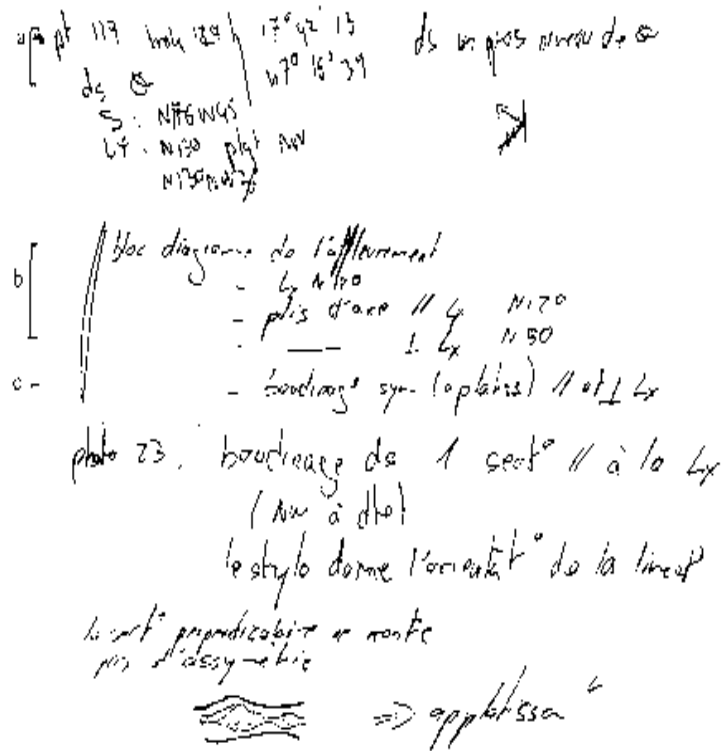 pt 117 17° 42' 13 ds un gros niveau de
ds 47° 16' 39
S : N76NW45
Lx : N130 plgt NW
b bloc diagramme de l'affleurement
- Lx N170
- plis d'axe // Lx N170
- —— ⊥ Lx N50
c - - boudinage sym (aplatiss) // et ⊥ Lx
photo 23. boudinage ds 1 sect° // à la Lx
(NW à dte)
le stylo donne l'orientat° de la lineat°
la sect° perpendiculaire ne montre
pas d'assymétrie
=> applatissem^t